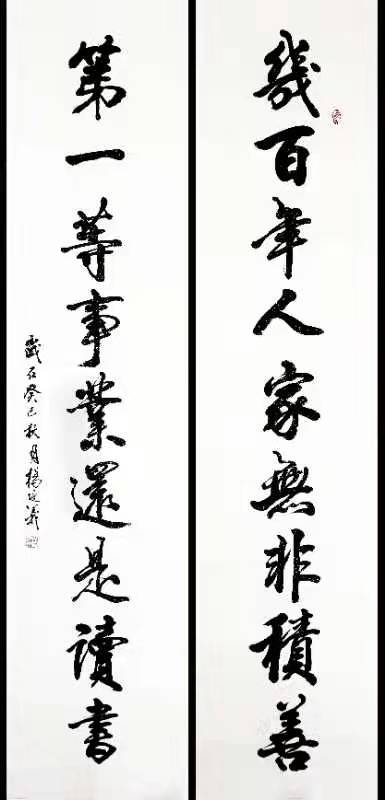 幾百年人家無非積善
第一等事業還是讀書
歲在癸巳秋月楊